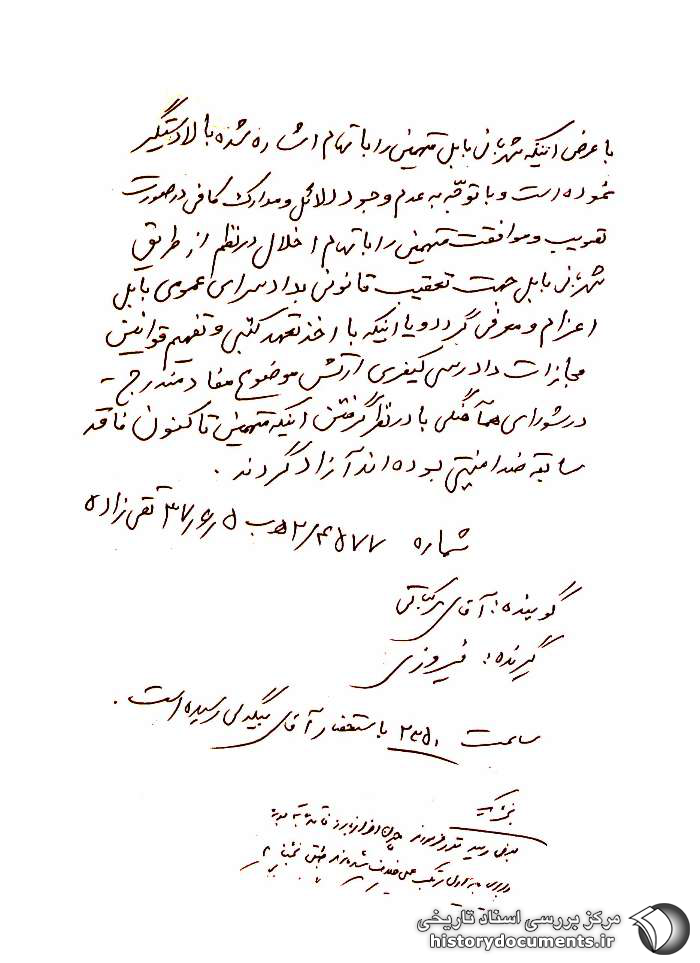 با عرض اینکه شهربانی بابل متهمین را با تهام اشاره شده بالا دستگیر
نموده است و با توجّه به عدم وجود دلائل و مدارک کافی در صورت
تصویب و موافقت متهمین را با تهام اخلال در نظم از طریق
شهربانی بابل جهت تعقیب قانونی بدادسرای عمومی بابل
اعزام و معرفی گردد و یا اینکه با اخذ تعهد کتبی و تفهیم قوانین
مجازات دادرسی کیفری ارتش موضوع مفاد مندرج -
در شورای هم‌آهنگی با در نظر گرفتن اینکه متهمین تاکنون فاقد
سابقه ضد امنیتی بوده‌اند آزاد گردند.
شماره ۵۲/۴۵۷۷ ه‍ ب ۳۷/۶/۵ تقی زاده
گوینده: آقای
گیرنده: فیروزی
ساعت ۲۳۵۰ باستحضار آقای بیگدلی رسیده است.
مرکز بررسی اسناد تاریخی
historydocuments.ir